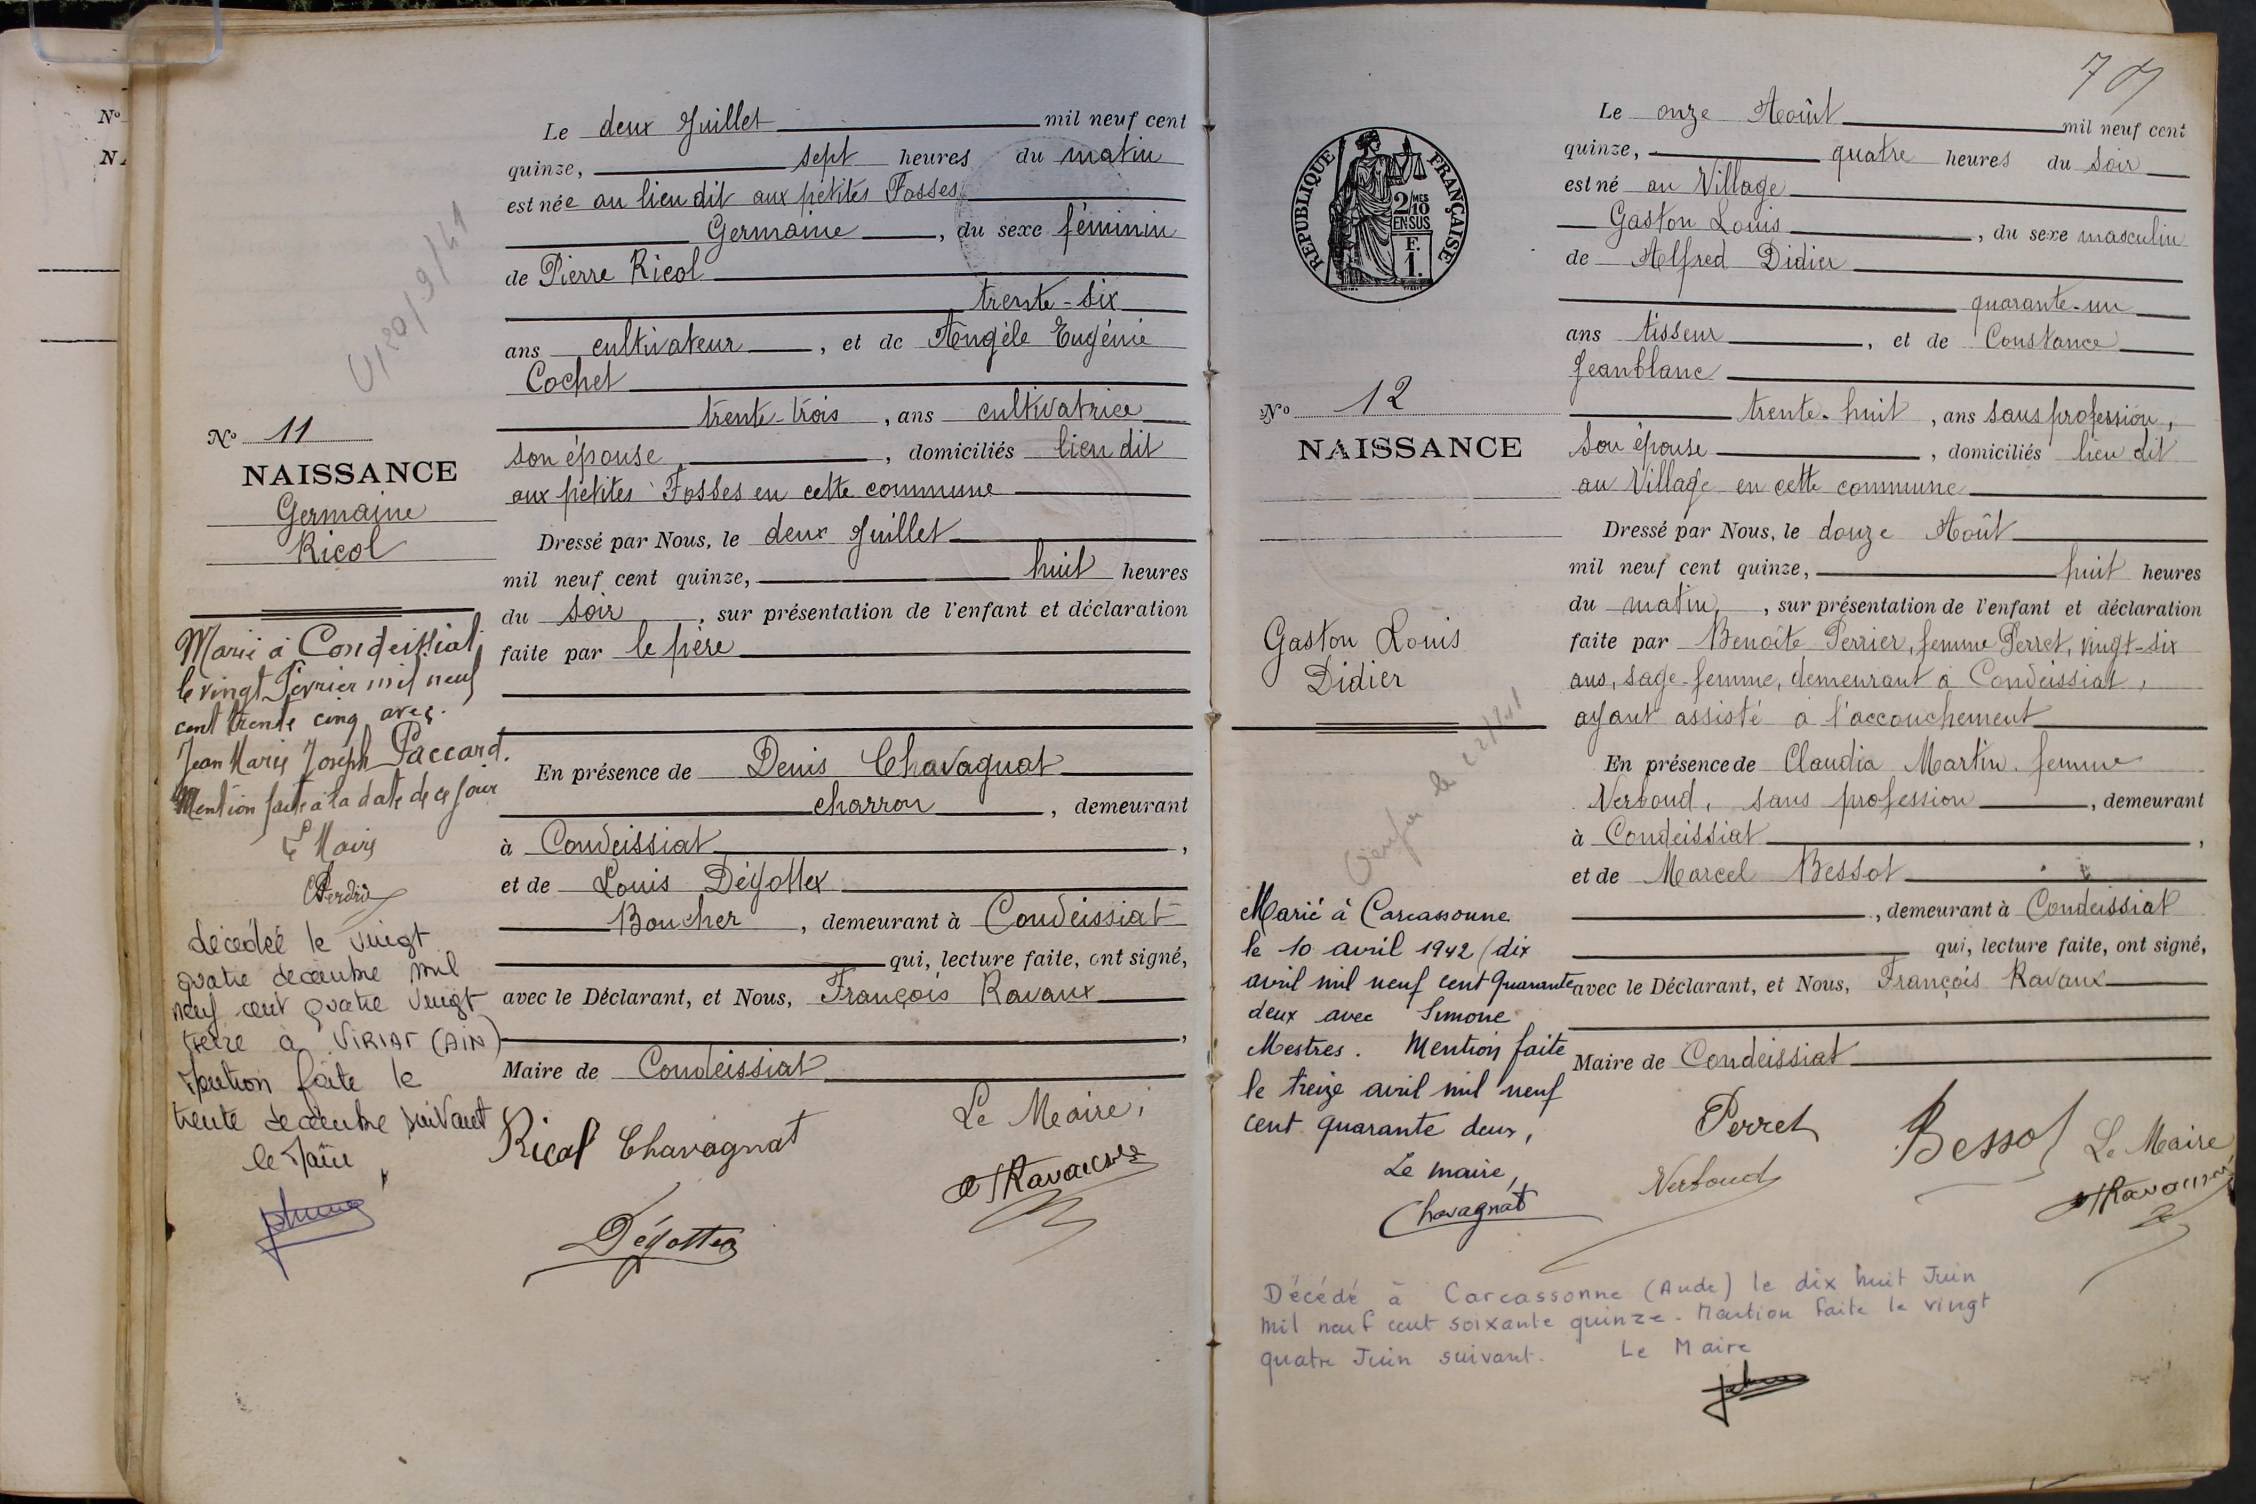 Nº
N
Le deux Juillet mil neuf cent
quinze, sept heures du matin
est née au lieu dit aux petites Fosses
Germaine, du sexe féminin
de Pierre Ricol
trente-six
ans cultivateur, et de Angèle Eugénie
Cochet
trente-trois, ans cultivatrice
son épouse, domiciliés lieu dit
aux petites Fosses en cette commune
Dressé par Nous, le deux Juillet
mil neuf cent quinze, huit heures
du soir, sur présentation de l'enfant et déclaration
faite par le père
En présence de Denis Chavagnat
charron, demeurant
à Condeissiat,
et de Louis Dégottex
Boucher, demeurant à Condeissiat
qui, lecture faite, ont signé,
avec le Déclarant, et Nous, François Ravaux
,
Maire de Condeissiat
Le Maire,
Ricol Chavagnat
Ravaux
Dégottex
Nº 11
NAISSANCE
Germaine
Ricol
Marié à Condeissiat
le vingt Février mil neuf
cent trente cinq avec
Jean Marie Joseph Paccard.
Mention faite à la date de ce jour
Le Maire
Perdrix
décédée le vingt
quatre decembre mil
neuf cent quatre vingt
treize à VIRIAT (AIN)
Mention faite le
trente decembre suivant
le Maire
Le onze Août mil neuf cent
quinze, quatre heures du soir
est né au Village
Gaston Louis, du sexe masculin
de Alfred Didier
quarante-un
ans tisseur, et de Constance
Jeanblanc
trente-huit, ans sans profession,
son épouse, domiciliés lieu dit
au Village en cette commune
Dressé par Nous, le douze Août
mil neuf cent quinze, huit heures
du matin, sur présentation de l'enfant et déclaration
faite par Benoîte Perrier, femme Perret, vingt-six
ans, sage-femme, demeurant à Condeissiat,
ayant assisté à l'accouchement
En présence de Claudia Martin femme
Nerboud, sans profession, demeurant
à Condeissiat,
et de Marcel Bessot
, demeurant à Condeissiat
qui, lecture faite, ont signé,
avec le Déclarant, et Nous, François Ravaux
Maire de Condeissiat
Perret Bessot Le Maire
Nerboud Ravaux
RÉPUBLIQUE FRANÇAISE
2/10 MES
EN SUS
F.
1.
Nº 12
NAISSANCE
Gaston Louis
Didier
Marié à Carcassonne
le 10 avril 1942 (dix
avril mil neuf cent quarante
deux avec Simone
Mestres. Mention faite
le treize avril mil neuf
cent quarante deux,
Le maire,
Chavagnat
Décédé à Carcassonne (Aude) le dix huit Juin
mil neuf cent soixante quinze. Mention faite le vingt
quatre Juin suivant. Le Maire